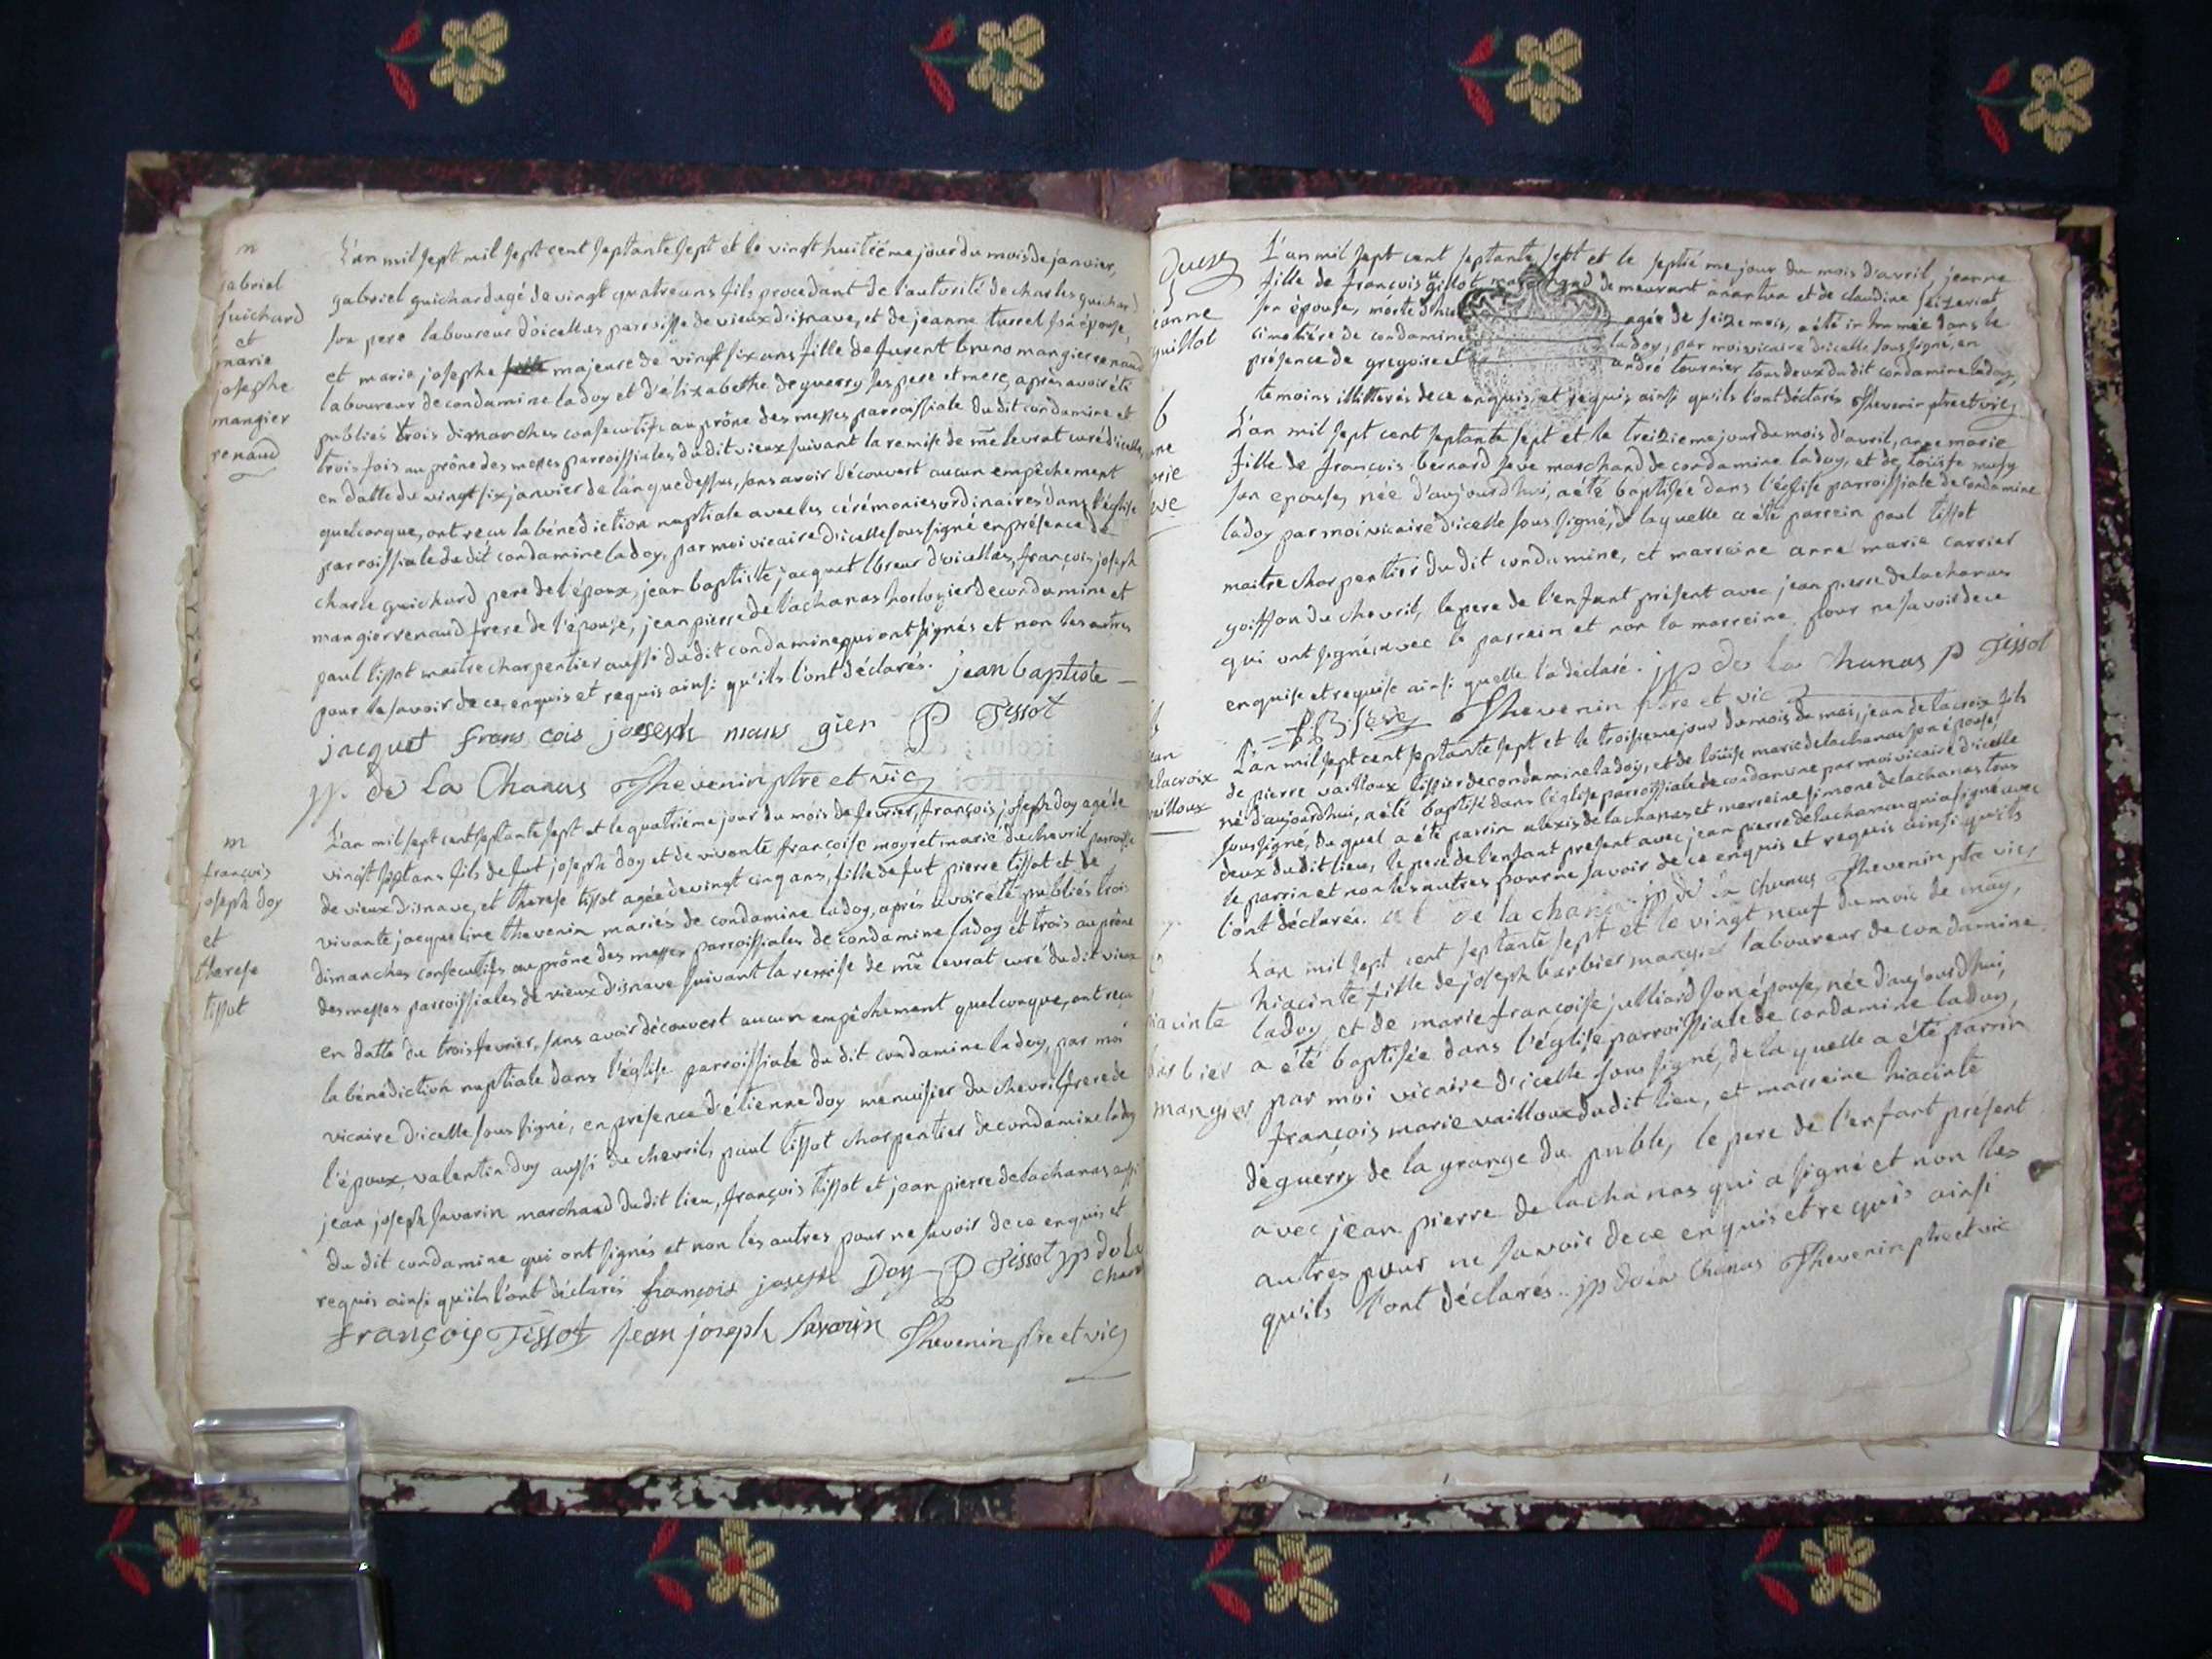 m
gabriel
guichard
et
marie
josephe
mangier
renaud
L'an mil sept mil sept cent septante sept et le vingt huitiéme jour du mois de janvier,
gabriel guichard agé de vingt quatre ans fils procedant de l'autorité de charles guichard
son pere laboureur d'oicellas parroisse de vieux d'isnave, et de jeanne turrel son épouse,
et marie josephe majeure de vingt six ans fille de furent bruno mangier renaud
laboureur de condamine ladoy et d'elizabethe deguerry ses pere et mere, après avoir été
publiés trois dimanches consecutifs au prône des messes parroissiale du dit condamine et
trois fois au prône des messes parroissiales du dit vieux suivant la remise de mre levrat curé d'icelle,
en datte du vingt six janvier de l'an que dessus, sans avoir découvert aucun empêchement
quelconque, ont recu la bénediction nuptiale avec les cérémonies ordinaires dans l'église
parroissiale du dit condamine ladoy, par moi vicaire d'icelle sous signé en présence de
charle guichard pere de l'époux, jean baptiste jacquet lbreur d'oicellas, françois joseph
mangier renaud frere de l'épouse, jean pierre de lachanas horlogier de condamine et
paul tissot maitre charpentier aussi du dit condamine qui ont signés et non les autres
pour ne savoir de ce enquis et requis ainsi qu'ils l'ont déclarés. jean baptiste
jacquet frans cois joseph mans gier P Tissot
jp. de La Chanas Thevenin ptre et vic
m
françois
joseph doy
et
therese
tissot
L'an mil sept cent septante sept et le quatriéme jour du mois de fevrier, françois joseph doy agé de
vingt sept ans fils de fut joseph doy et de vivante françoise moyret marié du chevril parroisse
de vieux d'isnave, et therese tissot agée de vingt cinq ans, fille de fut pierre tissot et de
vivante jacqueline thevenin mariés de condamine ladoy, aprés avoir été publiés trois
dimanches consecutifs au prône des messes parroissiales de condamine ladoy et trois au prône
des messes parroissiales de vieux d'isnave suivant la remise de mre levrat curé du dit vieux
en datte du trois fevrier, sans avoir découvert aucun empêchement quelconque, ont recu
la bénédiction nuptiale dans l'église parroissiale du dit condamine ladoy, par moi
vicaire d'icelle sous signé, en présence d'étienne doy menuisier du chevril frere de
l'époux, valentin doy aussi du chevril, paul tissot charpentier de condamine ladoy
jean joseph savarin marchand dudit lieu, françois tissot et jean pierre de lachanas aussi
du dit condamine qui ont signés et non les autres pour ne savoir de ce enquis et
requis ainsi qu'ils l'ont déclarés françois joseph Doy P Tissot jp de La
Chan
françois Tissot jean joseph savarin Thevenin ptre et vic
jeanne
guillot
L'an mil sept cent septante sept et le septié me jour du mois d'avril jeanne
fille de françois guillot marchand demeurant anantua et de claudine seizeriat
son épouse, morte d'hie agée de seize mois, a été inhumée dans le
cimetiére de condamine ladoy, par moi vicaire d'icelle sous signé, en
présence de gregoire et andré tournier tous deux du dit condamine ladoy,
temoins illitterés de ce enquis et requis ainsi qu'ils l'ont déclarés Thevenin ptre et vic
b
L'an mil sept cent septante sept et le treizieme jour du mois d'avril, anne marie
fille de françois bernard seve marchand de condamine ladoy, et de loüise musy
son epouse, née d'aujourd'hui, a été baptisée dans l'église parroissiale de condamine
ladoy par moi vicaire d'icelle sous signé, de laquelle a été parrein paul tissot
maitre charpentier du dit condamine, et marreine anne marie carrier
goiffon du chevril, le pere de l'enfant présent avec jean pierre delachanas
qui ont signé, avec le parrein et non la marreine pour ne savoir de ce
enquise et requise ainsi quelle l'a déclaré. jp de la Chanas P Tissot
f B seve Thevenin ptre et vic
b
delacroix
vailloux
L'an mil sept cent septante sept et le troisieme jour du mois de mai, jean delacroix fils
de pierre vailloux tissier de condamine ladoy, et de loüise marie delachanas son épouse,
né d'aujourdhui, a été baptisé dans l'église parroissiale de condamine par moi vicaire d'icelle
sous signé, du quel a été parrin alexis de lachanas et marreine simone delachanas tous
deux du dit lieu, le pere de l'enfant présent avec jean pierre delachanas qui a signé avec
le parrin et non les autres pour ne savoir de ce enquis et requis ainsi qu'ils
l'ont déclarés. al de la chanas jp de la chanas Thevenin ptre vic
hiacinte
barbier
mangier
L'an mil sept cent septante sept et le vingt neuf du mois de may,
hiacinte fille de joseph barbier mangier laboureur de condamine
ladoy et de marie françoise julliard son épouse, née d'aujourdhui,
a été baptisée dans l'église parroissiale de condamine ladoy,
par moi vicaire d'icelle sous signé, de la quelle a été parrin
françois marie vailloux du dit lieu, et marreine hiacinte
deguerry de la grange du puble, le pere de l'enfant présent
avec jean pierre de lachanas qui a signé et non les
autres pour ne savoir de ce enquis et requis ainsi
qu'ils l'ont déclarés. jp de la Chanas Thevenin ptre et vic